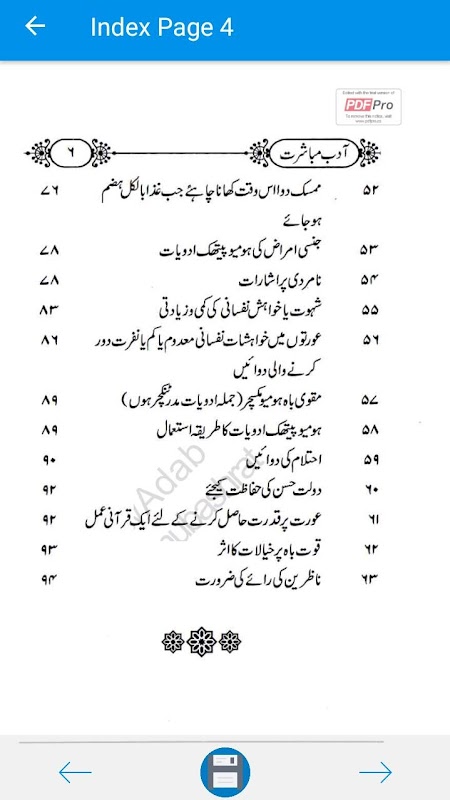 Index Page 4
Edited with the trial version of
PDF Pro
To remove this notice, visit
www.pdfpro.co
آدب مباشرت ۶
۵۲ ممسک دوا اس وقت کھانا چاہئے جب غذا بالکل ہضم ۷۶
ہو جائے
۵۳ جنسی امراض کی ہومیو پیتھک ادویات ۷۸
۵۴ نامردی پر اشارات ۷۸
۵۵ شہوت یا خواہش نفسانی کی کمی و زیادتی ۸۳
۵۶ عورتوں میں خواہشات نفسانی معدوم یا کم یا نفرت دور ۸۶
کرنے والی دوائیں
۵۷ مقوی باہ ہومیو مکسچر (جملہ ادویات مدر ٹنکچر ہوں) ۸۹
۵۸ ہومیو پیتھک ادویات کا طریقہ استعمال ۸۹
۵۹ احتلام کی دوائیں ۹۰
۶۰ دولت حسن کی حفاظت کیجئے ۹۲
۶۱ عورت پر قدرت حاصل کرنے کے لئے ایک قرآنی عمل ۹۲
۶۲ قوت باہ پر خیالات کا اثر ۹۳
۶۳ ناظرین کی رائے کی ضرورت ۹۴
Adab